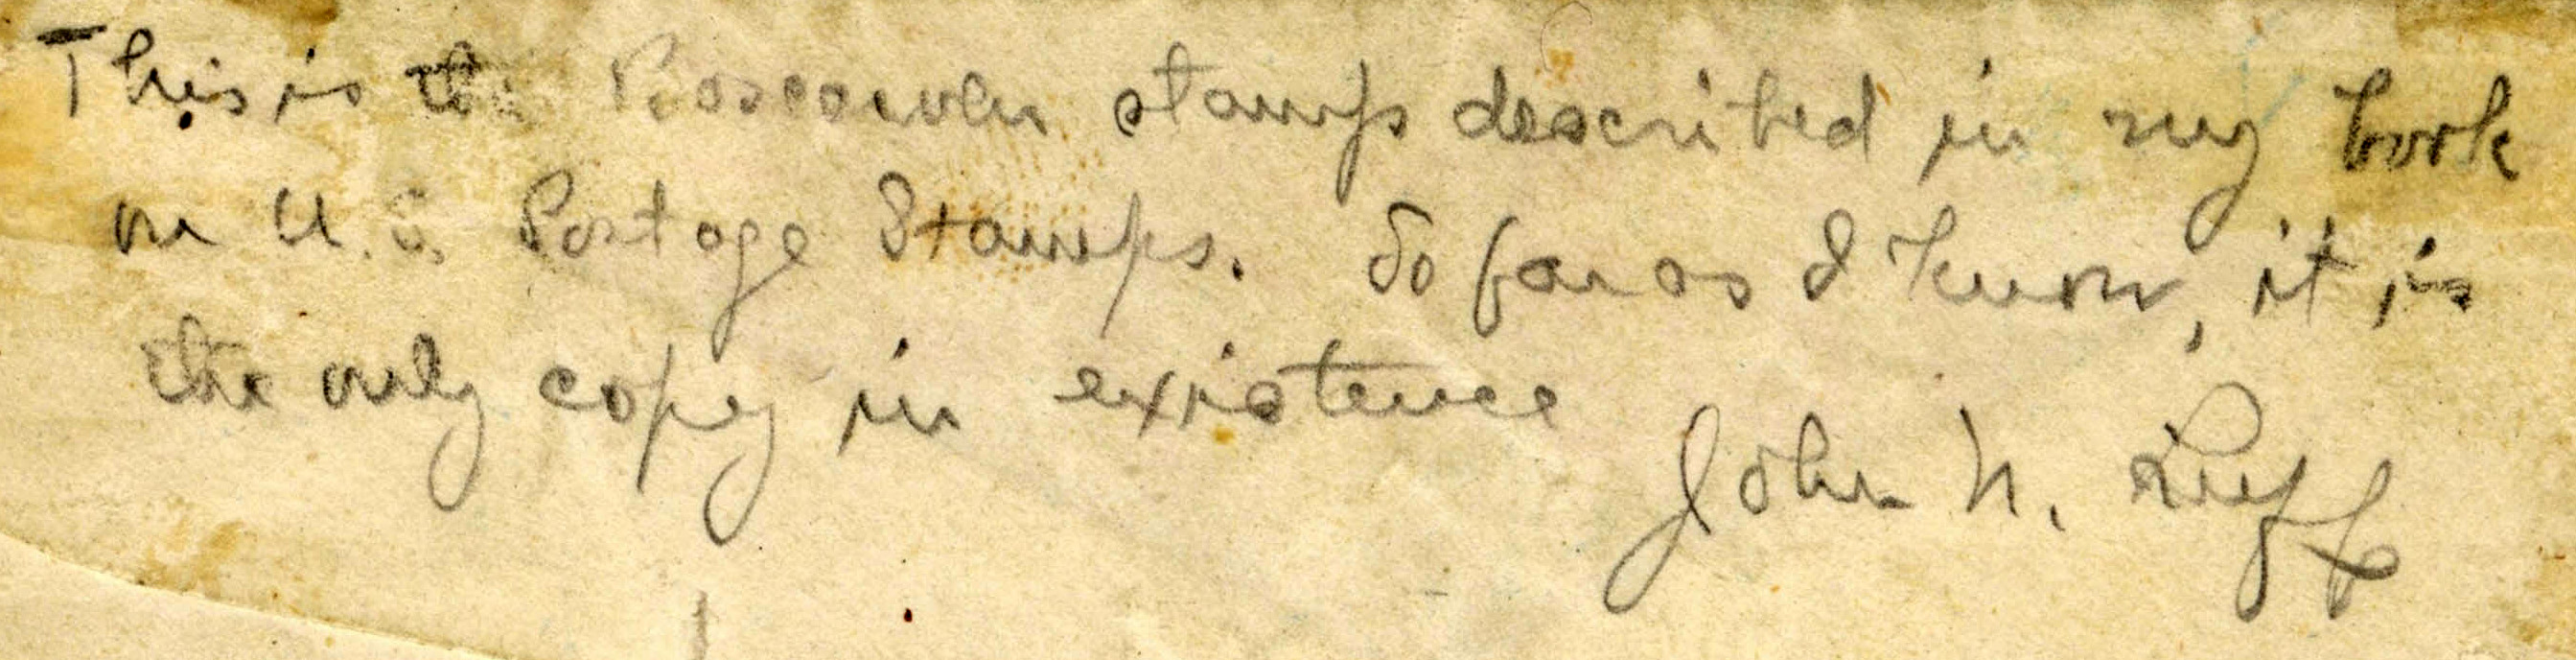 This is the Boscawen stamp described in my book
on U.S. Postage Stamps. So far as I know, it is
the only copy in existence
John N. Luff